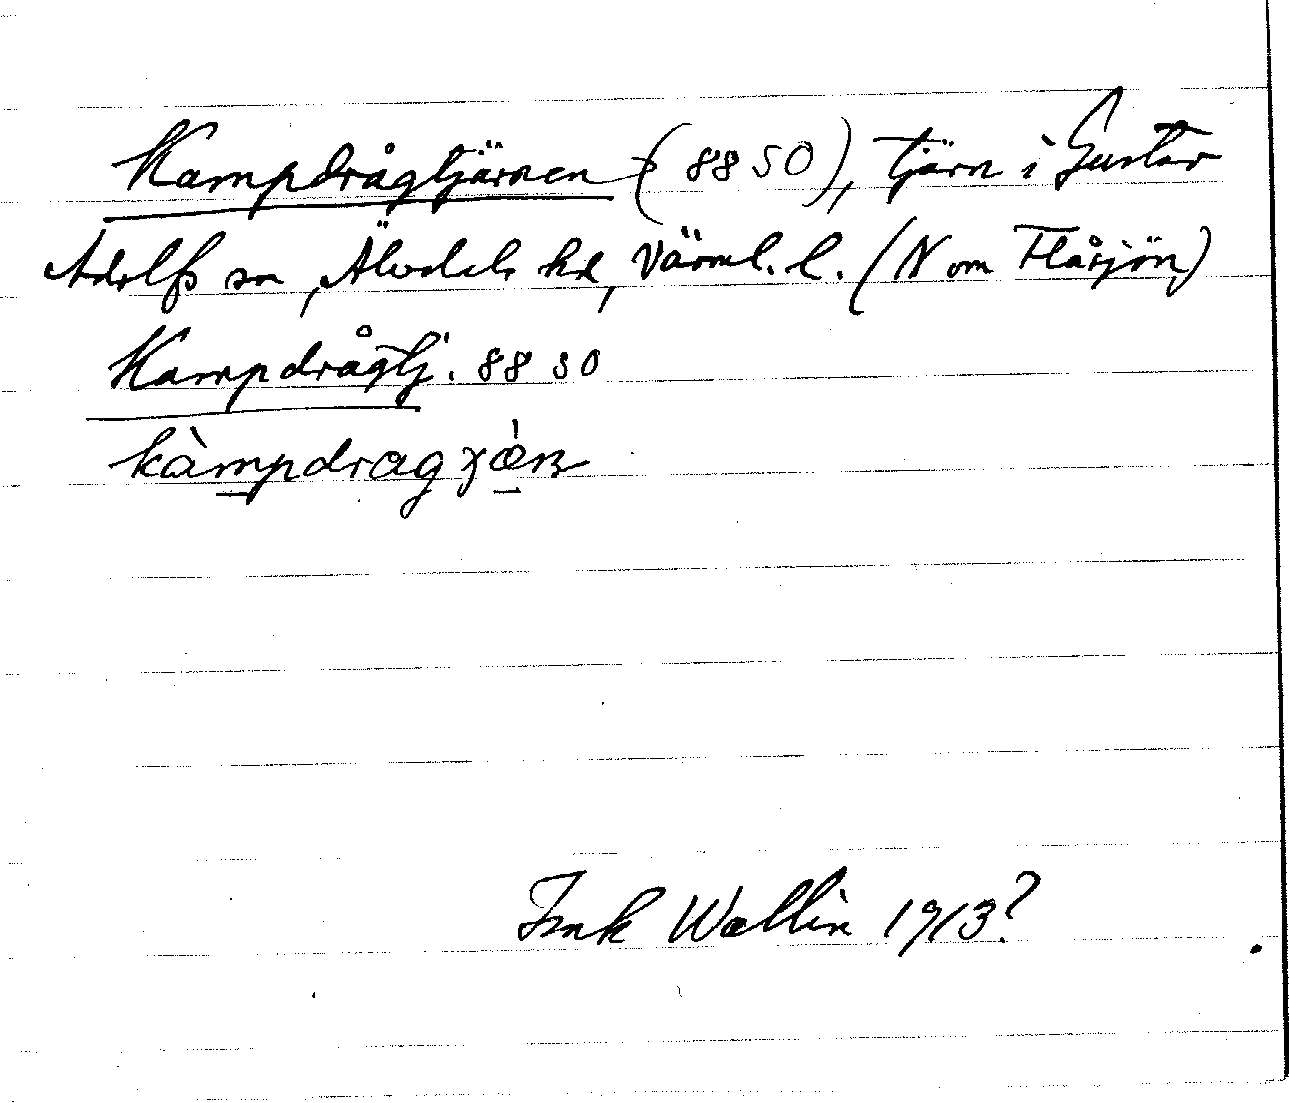 Kampdrågtjärnen (8850), tjärn i Gustav
Adolfs sn, Älvdals hd, Värml. l. (N om Flåsjön)
Kampdrågtj. 8850
kàmpdragɣæ̀ṇ
Wallin 1913?